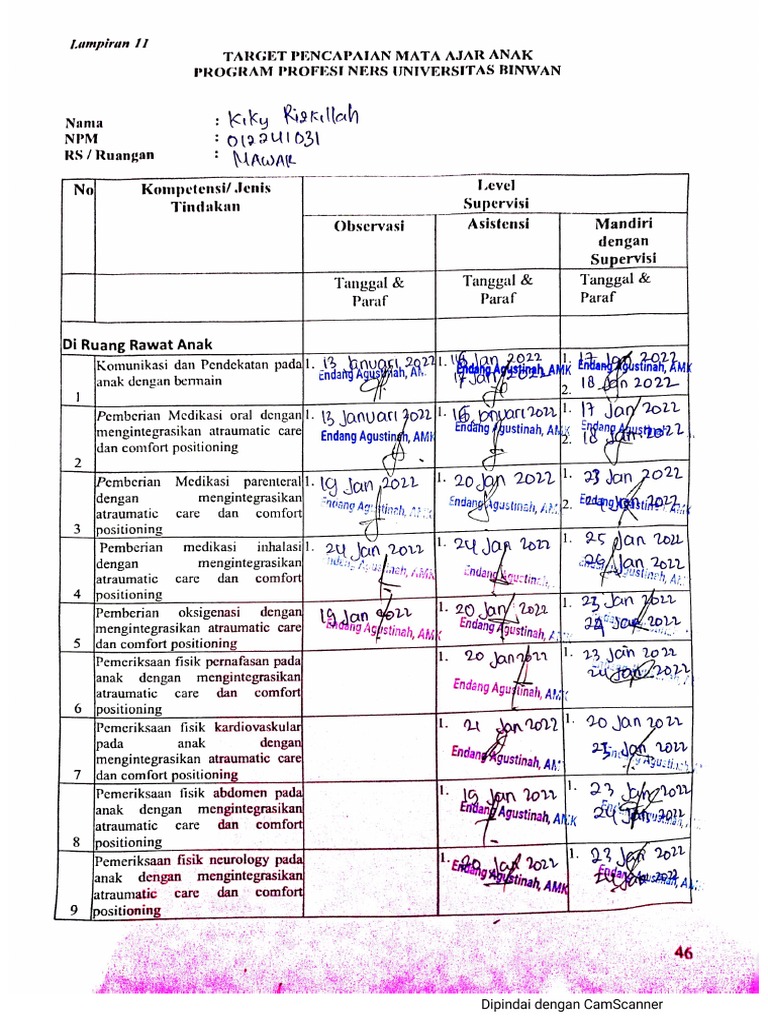 Lampiran 11
TARGET PENCAPAIAN MATA AJAR ANAK
PROGRAM PROFESI NERS UNIVERSITAS BINWAN
Nama : Kiky Rizkillah
NPM : 012241031
RS / Ruangan : MAWAR
No Kompetensi/ Jenis Tindakan Level Supervisi
Observasi Asistensi Mandiri dengan Supervisi
Tanggal & Paraf Tanggal & Paraf Tanggal & Paraf
Di Ruang Rawat Anak
1 Komunikasi dan Pendekatan pada anak dengan bermain
1. 13 Januari 2022
Endang Agustinah, AMK
1. 16 Jan 2022
17 Jan 2022
Endang Agustinah, AMK
1. 17 Jan 2022
2. 18 Jan 2022
Endang Agustinah, AMK
2 Pemberian Medikasi oral dengan mengintegrasikan atraumatic care dan comfort positioning
1. 13 Januari 2022
Endang Agustinah, AMK
1. 16 Januari 2022
Endang Agustinah, AMK
1. 17 Jan 2022
2. 18 Jan 2022
Endang Agustinah, AMK
3 Pemberian Medikasi parenteral dengan mengintegrasikan atraumatic care dan comfort positioning
1. 19 Jan 2022
Endang Agustinah, AMK
1. 20 Jan 2022
Endang Agustinah, AMK
1. 23 Jan 2022
2. 24 Jan 2022
4 Pemberian medikasi inhalasi dengan mengintegrasikan atraumatic care dan comfort positioning
1. 24 Jan 2022
Endang Agustinah, AMK
1. 24 Jan 2022
Endang Agustinah, AMK
1. 25 Jan 2022
Jan 2022
Endang Agustinah, AMK
5 Pemberian oksigenasi dengan mengintegrasikan atraumatic care dan comfort positioning
19 Jan 2022
Endang Agustinah, AMK
1. 20 Jan 2022
Endang Agustinah, AMK
1. 23 Jan 2022
24 Jan 2022
6 Pemeriksaan fisik pernafasan pada anak dengan mengintegrasikan atraumatic care dan comfort positioning
1. 20 Jan 2022
Endang Agustinah, AMK
1. 23 Jan 2022
24 Jan 2022
7 Pemeriksaan fisik kardiovaskular pada anak dengan mengintegrasikan atraumatic care dan comfort positioning
1. 21 Jan 2022
Endang Agustinah, AMK
1. 20 Jan 2022
Jan 2022
8 Pemeriksaan fisik abdomen pada anak dengan mengintegrasikan atraumatic care dan comfort positioning
1. 19 Jan 2022
Endang Agustinah, AMK
1. 23 Jan 2022
24 Jan 2022
9 Pemeriksaan fisik neurology pada anak dengan mengintegrasikan atraumatic care dan comfort positioning
1. 20 Jan 2022
Endang Agustinah, AMK
1. 23 Jan 2022
24 Jan 2022
46
Dipindai dengan CamScanner